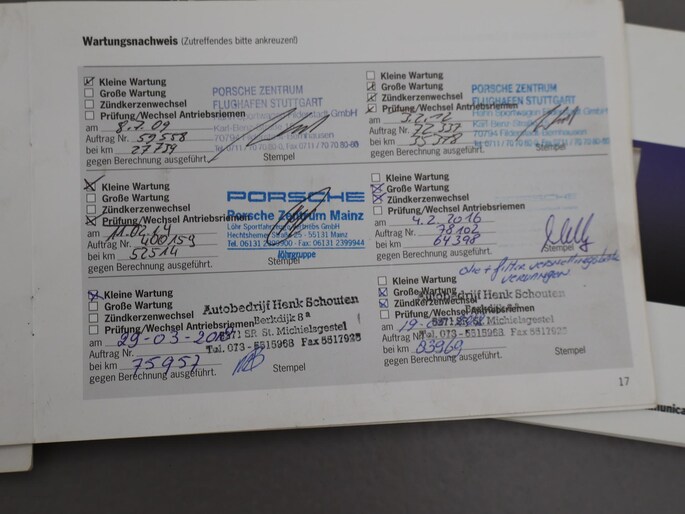 Wartungsnachweis (Zutreffendes bitte ankreuzen!)
Kleine Wartung
Große Wartung
Zündkerzenwechsel
Prüfung/Wechsel Antriebsriemen
am 8.7.09
Auftrag Nr. 59558
bei km 27739
gegen Berechnung ausgeführt.
Stempel
PORSCHE ZENTRUM
FLUGHAFEN STUTTGART
GmbH
Karl-Benz-
70794
Tel. 0711 / 70 70 80-0, Fax 0711 / 70 70 80-80
Kleine Wartung
Große Wartung
Zündkerzenwechsel
Prüfung/Wechsel Antriebsriemen
am 3.2.12
Auftrag Nr.
bei km
gegen Berechnung ausgeführt.
Stempel
PORSCHE ZENTRUM
FLUGHAFEN STUTTGART
Hahn Sportwagen GmbH
70794 Filderstadt-Bernhausen
Kleine Wartung
Große Wartung
Zündkerzenwechsel
Prüfung/Wechsel Antriebsriemen
am 11.04.14
Auftrag Nr. 400159
bei km 52514
gegen Berechnung ausgeführt.
PORSCHE
Porsche Zentrum Mainz
Löhr Sportfahrzeug Vertriebs GmbH
Hechtsheimer Straße 25 - 55131 Mainz
Tel. 06131 2399900 - Fax: 06131 2399944
löhrgruppe
Kleine Wartung
Große Wartung
Zündkerzenwechsel
Prüfung/Wechsel Antriebsriemen
am 4.2.2016
Auftrag Nr. 78102
bei km 64398
gegen Berechnung ausgeführt.
Stempel
olie + filter
Kleine Wartung
Große Wartung
Zündkerzenwechsel
Prüfung/Wechsel Antriebsriemen
am 29-03-
Auftrag Nr.
bei km 75957
gegen Berechnung ausgeführt.
Stempel
Autobedrijf Henk Schouten
Berkdijk 8a
5271 SP. St. Michielsgestel
Tel. 073 - 5515968 Fax 5517925
Kleine Wartung
Große Wartung
Zündkerzenwechsel
Prüfung/Wechsel Antriebsriemen
am 19-
Auftrag Nr.
bei km 83969
gegen Berechnung ausgeführt.
Stempel
Autobedrijf Henk Schouten
Berkdijk 8a
5271 SP. St. Michielsgestel
Tel. 073 - 5515968 Fax 5517925
17